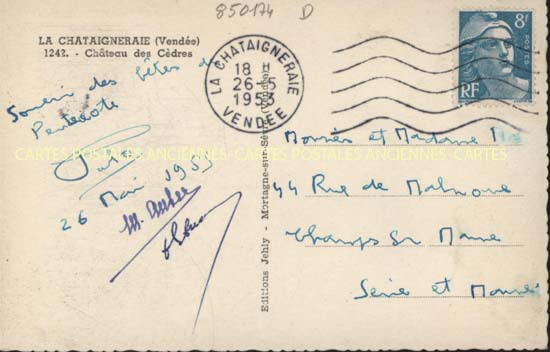 850174 D
LA CHATAIGNERAIE (Vendée)
1242. - Château des Cèdres
Souvenir des fêtes de
Pentecôte
26 Mai 1953
LA CHATAIGNERAIE
18 H
26-5
1953
VENDÉE
8F
POSTES
RF
Editions Jehly - Mortagne-sur-Sèvre (Vendée)
Monsieur et Madame
44 Rue de Malnoue
Champs Sr Marne
Seine et Marne
CARTES POSTALES ANCIENNES CARTES POSTALES ANCIENNES CARTES